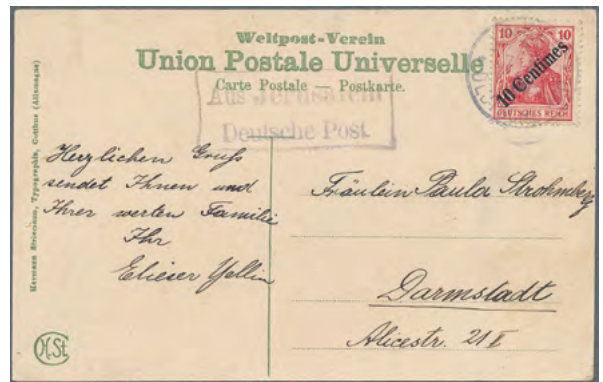 Weltpost-Verein
Union Postale Universelle
Carte Postale — Postkarte.
Aus Jerusalem
Deutsche Post
10 10
10 Centimes
DEUTSCHES REICH
Hermann Striemann, Typographie, Cottbus (Allemagne)
Herzlichen Gruß
sendet Ihnen und
Ihrer werten Familie
Ihr
Elieser Yellin
Fräulein Paula Strohmberg
Darmstadt
Alicestr. 21 I
H.St.C